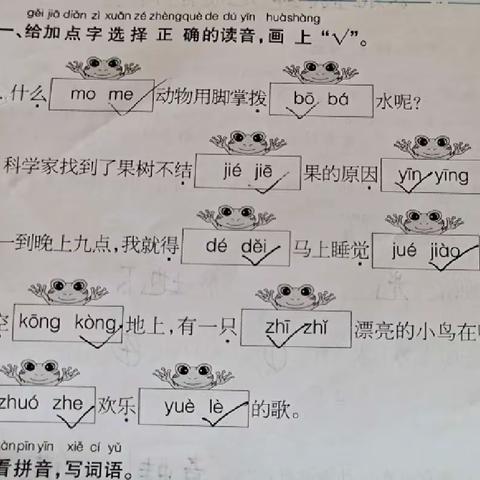 gěi jiā diǎn zì xuǎn zé zhèng què de dú yīn huà shàng
一、给加点字选择正确的读音,画上“√”。
什么 mo me 动物用脚掌拨 bō bá 水呢?
科学家找到了果树不结 jié jiē 果的原因 yīn yīng
一到晚上九点,我就得 dé děi 马上睡觉 jué jiào
空 kōng kòng 地上,有一只 zhī zhǐ 漂亮的小鸟在
zhuó zhe 欢乐 yuè lè 的歌。
pīn yīn xiě cí yǔ
看拼音,写词语。